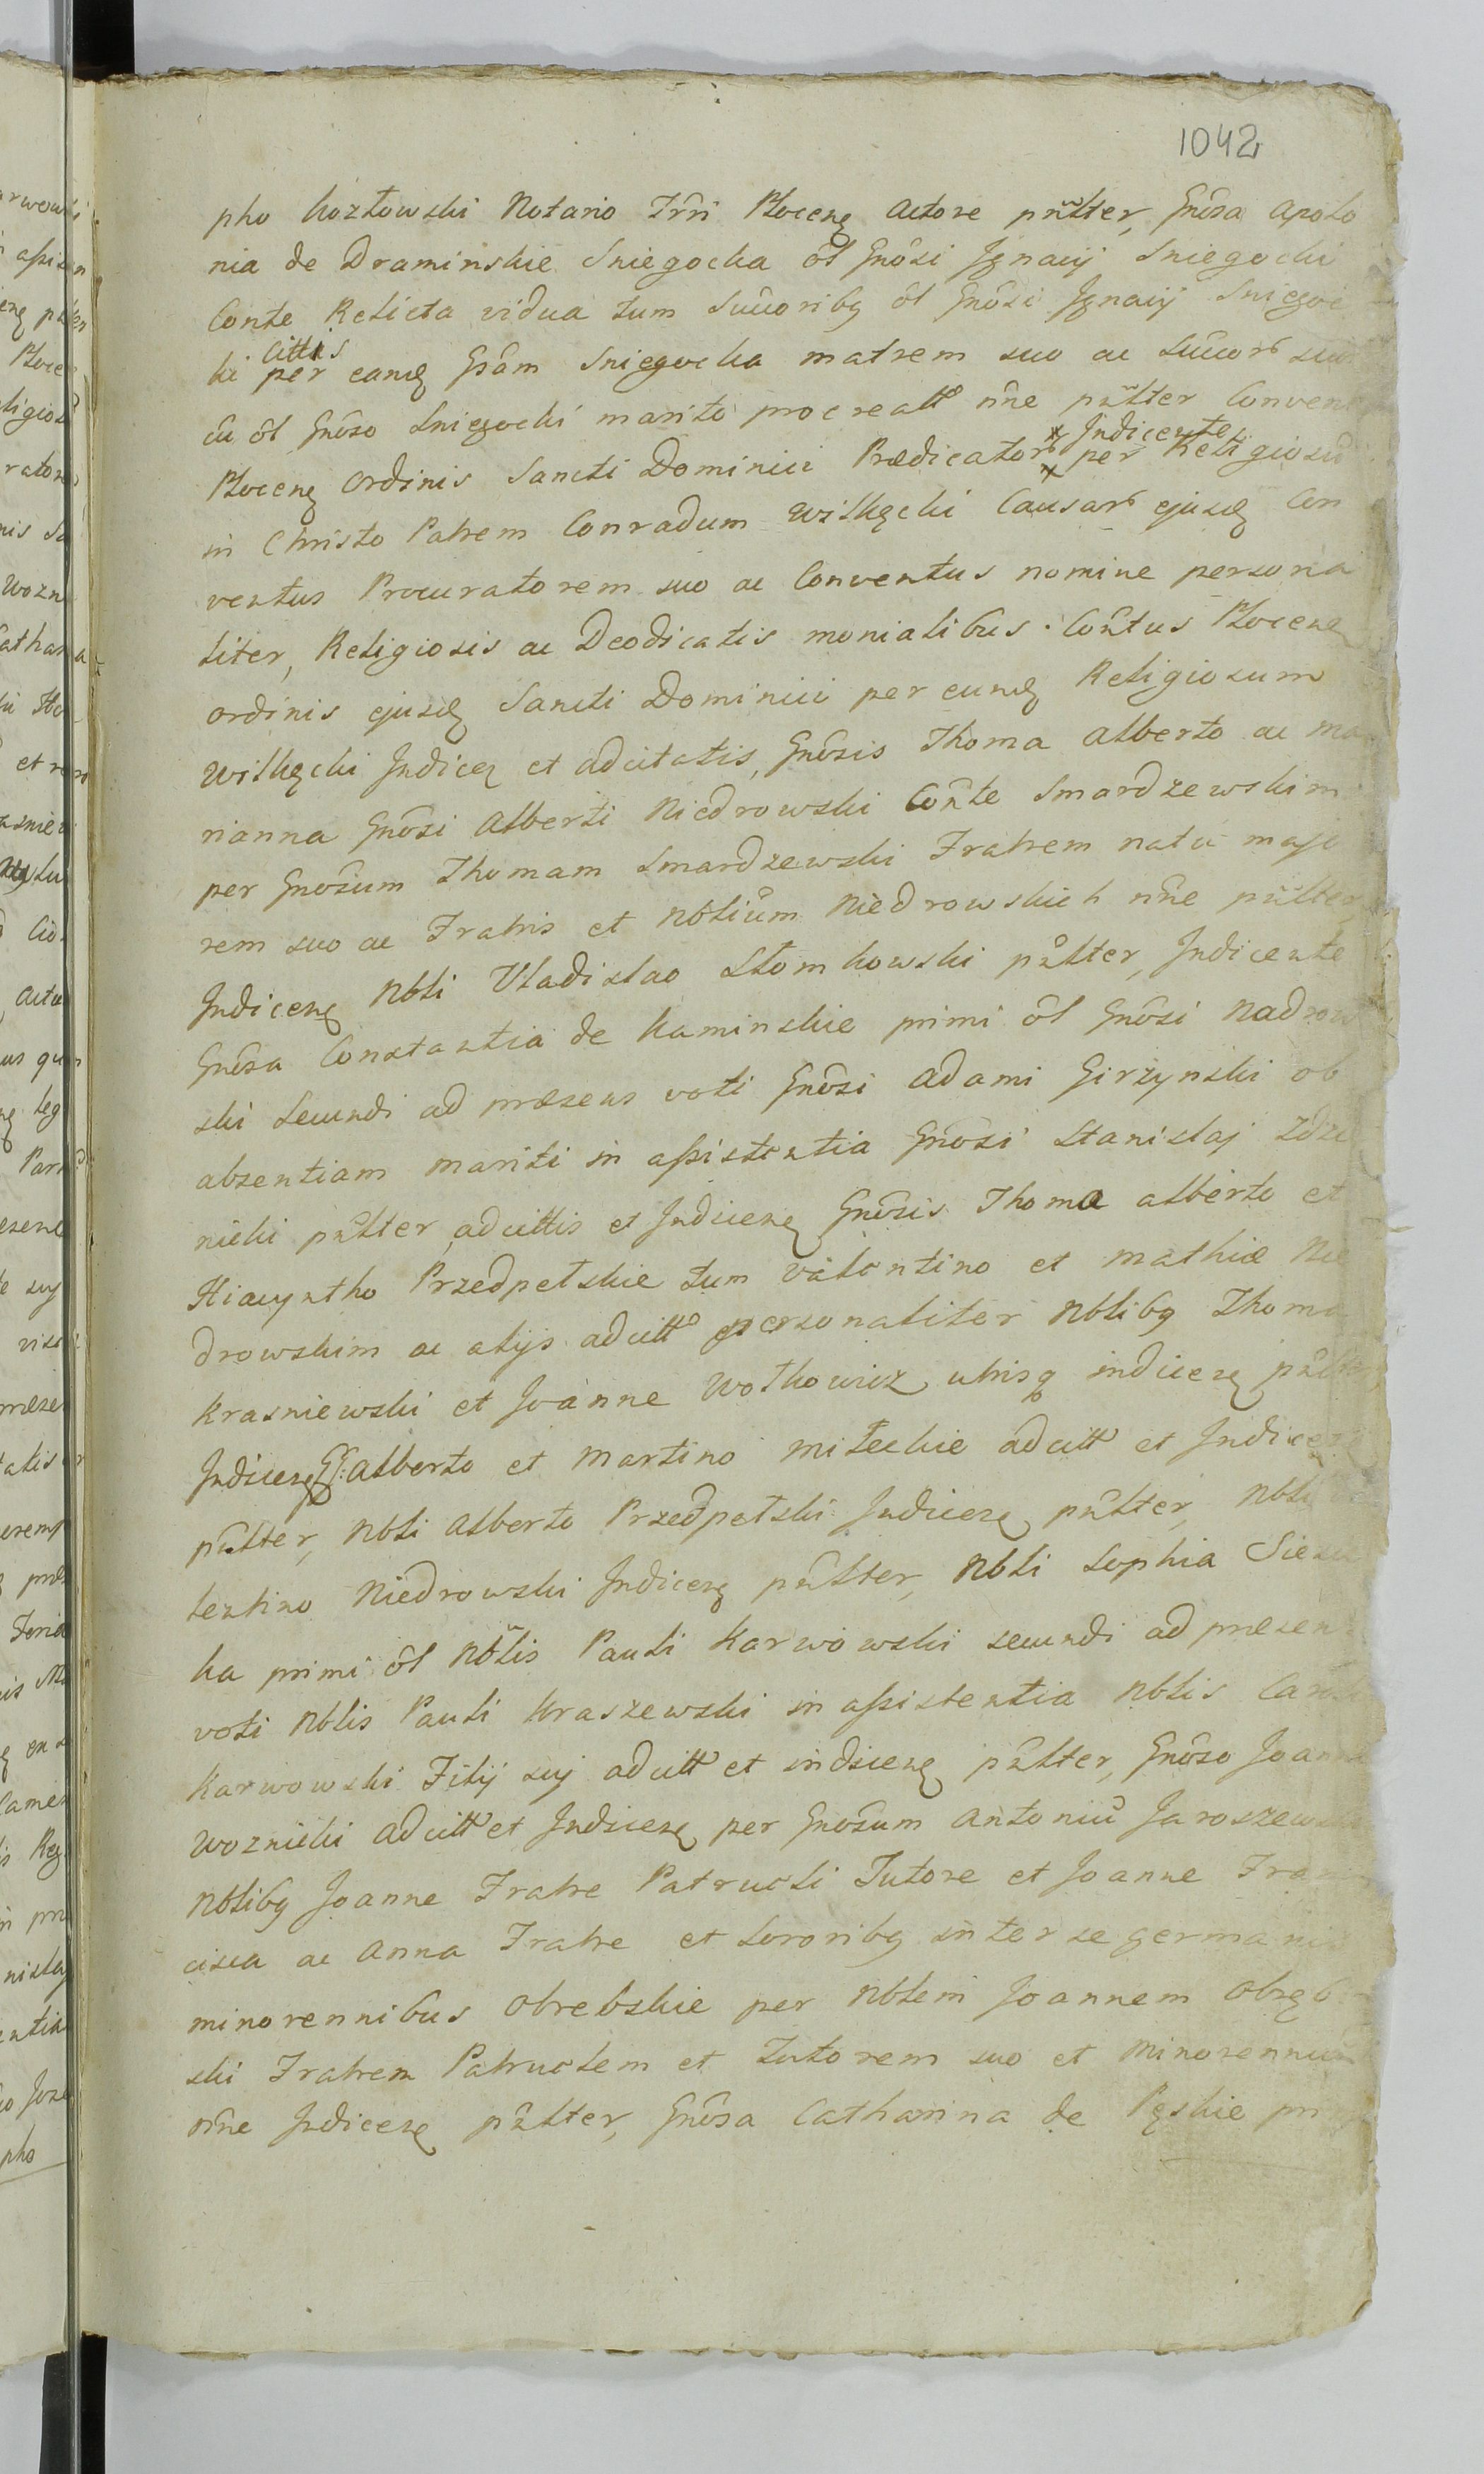 1042
pho Kozłowski Notario Trri Plocenę Actore pñlter, Gnôsa Apolo
nia de Draminskie Sniegocka ôl Gnôsi Jgnaÿ Sniegocki
Conte Relicta vidua tum Succoribq ôl Gnôsi Jgnaÿ Sniegoc
ki per eandę Gsâm Sniegocka matrem suo ac Succorũ
cittis
cũ ôl Gnôso Sniegocki marito procreatt nñe pñlter Conven
Plocenę Ordinis Sancti Dominici Prædicatorũ per Religiosũ
Judicente
in Christo Patrem Conradum Wilkęcki Causarũ ejusdę Con
ventus Procuratorem suo ac Conventus nomine persona
liter, Religiosis ac Deodicatis monialibus Coñtus Plocenę
Ordinis ejusdę Sancti Dominici per eundę Religiosum
Wilkęcki Judicę et adcitatis, Gnôsis Thoma Alberto ac Ma
rianna Gnôsi Alberti Niedrowski Coñte Smardzewskim
per Gnôsum Thomam Smardzewski Fratrem natu majo
rem suo ac Fratris et Nbliûm Niedrowskich nñe pñlter,
Judicenę Nbli Vladislao Słomkowski pñlter, Judicente
Gnôsa Constantia de Kaminskie primi ôl Gnôsi Nadrow
ski Secundi ad præsens voti Gnôsi Adami Girzynski ob
absentiam mariti in assistentia Gnôsi Stanislaj Zdzie
nicki pñlter, adcittis et Judicenę Gnôsis Thoma Alberto et
Hiacyntho Przedpełskie tum Valentino et Mathiæ Nie
drowskim ac alijs adcitt personaliter Nblibq Thoma
Krasniewski et Joanne Wołkowicz utrisq indicenę
Judicenę Alberto et Martino Miłeckie adcitt et
pñlter, Nbli Alberto Przedpełski Judicenę pñlter, Nbli
lentino Niedrowski Judicenę pñlter, Nbli Sophia
ka primi ôl Nblis Pauli Karwowski secundi ad præsens
voti Nblis Pauli Kraszewski in assistentia Nblis
Karwowski Filij suj adcitt et indicenę pñlter, Gnôso Joanne
Woznicki adcitt et Judicenę per Gnôsum Antoniũ Jaroszewski
Nblibq Joanne Fratre Patrueli Tutore et Joanne Fran
cisca ac Anna Fratre et Sororibq inter se germanis
minorennibus Obrebskie per Nblem Joannem Obręb
ski Fratrem Patruelem et Tutorem suo et minorennium
nñe Judicenę pñlter, Gnôsa Catharina de Pęskie